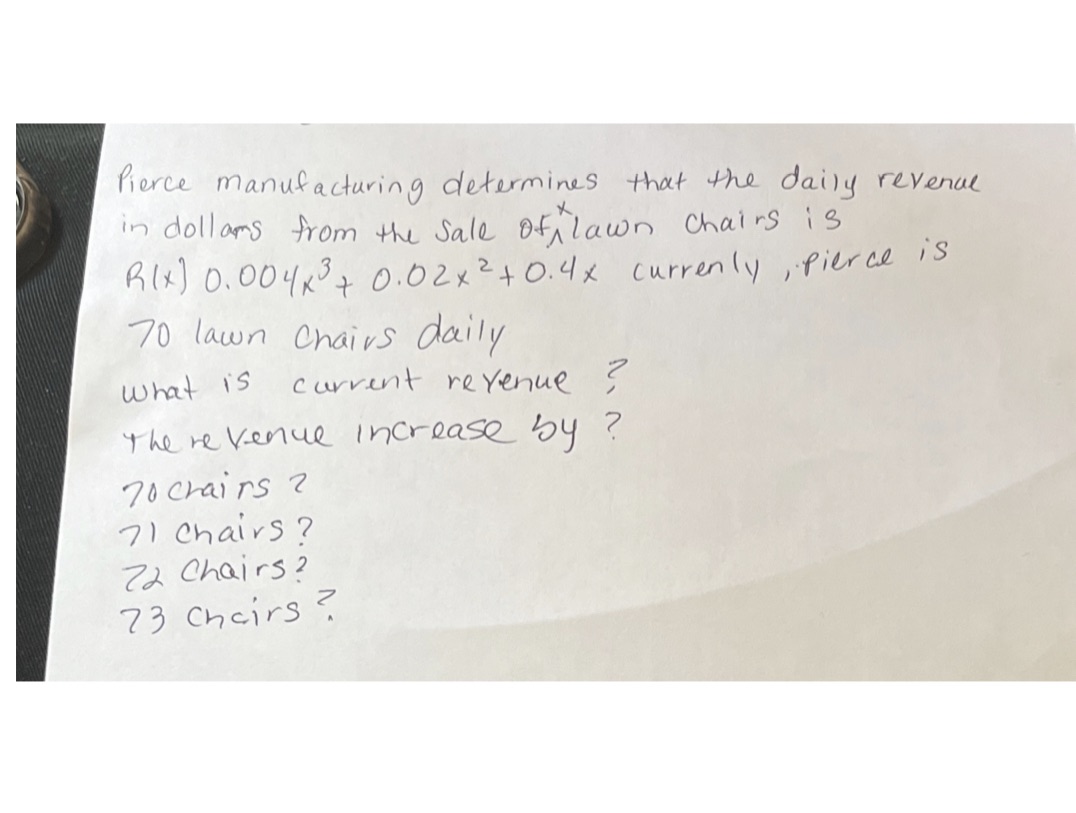 Pierce manufacturing determines that the daily revenue
in dollars from the sale of x lawn chairs is
R(x) 0.004x³ + 0.02x² + 0.4x currenly , pierce is
70 lawn chairs daily
what is current revenue ?
the revenue increase by ?
70 chairs ?
71 chairs ?
72 chairs ?
73 chairs ?